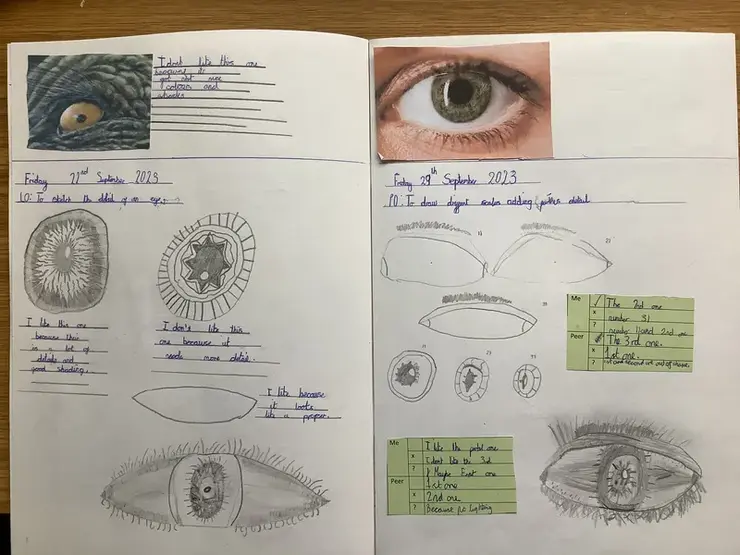 I dont like this one
because it
got not nice
colours and
Friday 22nd September 2023
LO: To sketch the detail of an eye.
I like this one
because their
is a lot of
details and
good shading.
I don't like this
one because it
needs more detail.
I like because
it looks
like a proper.
Friday 29th September 2023
LO: To draw diffrent scales adding further detail
Me
✓ The 2nd one
x number 31
? number 1 and 2nd
Peer
The 3rd one.
x 1st one.
?
Me
I like the one
x I dont like the 3rd
? Maybe First one
Peer
1st one
x 2nd one
? because no lighting